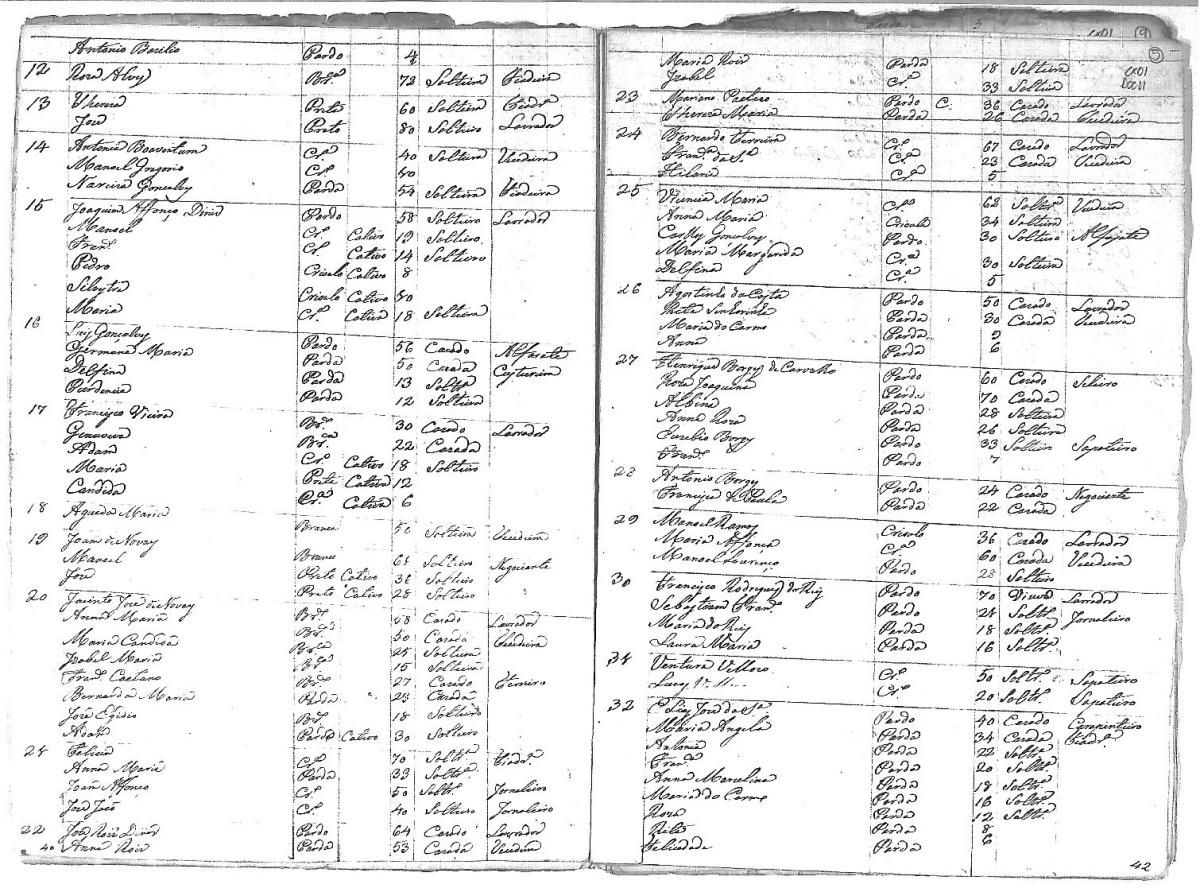 Antonio Bazilio Pardo 4
12 Roza Alvez Br.ca 72 Solteira Fiadeira
13 Thereza Preta 60 Solteira Fiadr.a
José Preto 80 Solteiro Lavrador
14 Antonia Boaventura Cr.a 40 Solteira Tecedeira
Manoel Gregorio Cr.o 50
Narciza Gonçalvez Parda 54 Solteira Fiadeira
15 Joaquim Affonço Diniz Pardo 58 Solteiro Lavrador
Manoel Cr.o Cativo 19 Solteiro
Fran.co Cr.o Cativo 14 Solteiro
Pedro Crioulo Cativo 8
Silvestre Crioulo Cativo 50
Maria Cr.a Cativa 18 Solteira
16 Luiz Gonçalvez Pardo 56 Cazado Alfaiate
Germana Maria Parda 50 Cazada Costureira
Delfina Parda 13 Soltr.a
Prudencia Parda 12 Solteira
17 Francisco Vieira Br.co 30 Cazado Lavrador
Genoveva Br.ca 22 Cazada
Adam Cr.o Cativo 18 Solteiro
Maria Preta Cativa 12
Candida Cr.a Cativa 6
18 Agueda Maria Branca 50 Solteira Tecedeira
19 Joam de Novaes Branco 61 Solteiro Negociante
Manoel Preto Cativo 36 Solteiro
José Preto Cativo 28 Solteiro
20 Jacinto José de Novaes Br.co 58 Cazado Lavrador
Anna Maria Br.ca 50 Cazada Tecedeira
Maria Candida Br.ca 25 Solteira
Izabel Maria Br.ca 15 Solteira
Fran.co Caetano Br.co 27 Cazado Ferreiro
Bernarda Maria Parda 23 Cazada
José Egidio Br.co 18 Solteiro
Adam Pardo Cativo 30 Solteiro
21 Felicia Cr.a 70 Soltr.a Fiadr.a
Anna Maria Parda 39 Soltr.a
Joam Affonço Cr.o 50 Soltr.o Jornaleiro
José João Cr.o 40 Solteiro Jornaleiro
22 José Roiz Diniz Pardo 64 Cazado Lavrador
40 Anna Roiz Parda 53 Cazada Tecedeira
5
1xD1 (9)
(5)
Maria Roiz Parda 18 Solteira
Izabel Cr.a 33 Solteira
23 Mariano Pacheco Pardo C. 36 Cazado Lavrador
Thereza Maria Parda 26 Cazada Tecedeira
24 Bernardo Ferreira Cr.o 67 Cazado Lavrador
Fran.ca da S.a Cr.a 23 Cazada Tecedeira
Hilario Cr.o 5
25 Vicencia Maria Cr.a 62 Soltr.a Tecedeira
Anna Maria Crioula 34 Solteira
Carlos Gonçalvez Pardo 30 Solteiro Alfaiate
Maria Margarida Cr.a 30 Solteira
Delfina Cr.a 5
26 Agostinho da Costa Pardo 50 Cazado Lavrador
Rita Parda 30 Cazada Tecedeira
Maria do Carmo Parda 9
Anna Parda 6
27 Henrique Borges de Carvalho Pardo 60 Cazado Seleiro
Roza Joaquina Parda 70 Cazada
Albina Parda 28 Solteira
Anna Roza Parda 26 Solteira
Aurelio Borges Pardo 33 Solteiro Sapateiro
Fran.co Pardo 7
28 Antonio Borges Pardo 24 Cazado Negociante
Francisca de Paula Parda 22 Cazada
29 Manoel Ramos Crioulo 36 Cazado Lavrador
Maria Affonça Cr.a 60 Cazada Tecedeira
Manoel Lourenço Pardo 28 Solteiro
30 Francisco Rodriguez do Reis Pardo 70 Viuvo Lavrador
Sebastiam Fran.co Pardo 24 Soltr.o Jornaleiro
Maria do Reis Parda 18 Soltr.a
Laura Maria Parda 16 Soltr.a
31 Ventura Velloso Cr.o 50 Soltr.o Sapateiro
Cr.o 20 Soltr.o Sapateiro
32 José da S.a Pardo 40 Cazado Carapinteiro
Maria Angela Parda 34 Cazada Fiadr.a
Antonia Parda 22 Soltr.a
Fran.ca Parda 20 Soltr.a
Anna Marcelina Parda 18 Soltr.a
Maria do Carmo Parda 16 Soltr.a
Roza Parda 12 Soltr.a
Rita Parda 8
Felicidade Parda 6
42